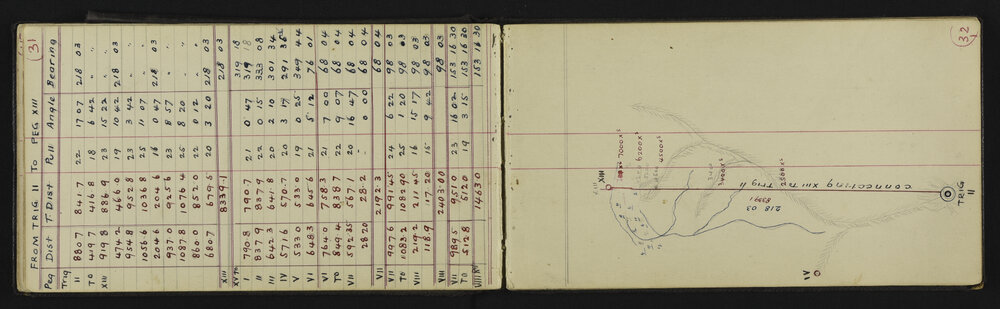 31
FROM TRIG II TO PEG XIII
Peg Dist T. Dist Pull Angle Bearing
Trig
II 880.7 841.7 22 17 07 218 03
TO 419.7 416.8 18 6 42 "
XIII 919.8 886.9 23 15 22 "
474.2 466.0 19 10 42 218 03
954.8 952.8 23 3 42 "
1056.6 1036.8 25 11 07 "
204.6 204.6 16 0 47 218 03
937.0 925.6 23 8 57 "
1087.8 1076.4 25 8 20 "
860.0 852.0 22 0 12 "
680.7 679.5 20 3 20 218 03
XIII 8339.1 218 03
XV TO 319 18
I 790.8 790.7 21 0 47 319 18
II 837.9 837.9 22 0 15 333 08
III 642.3 641.8 20 2 10 301 34
IV 571.6 570.7 20 3 17 291 36
V 533.0 533.0 19 0 25 349 44
VI 648.3 645.6 21 5 12 76 01
VI 764.0 758.3 21 7 00 68 04
TO 849.4 838.7 22 9 07 68 04
VII 592.35 567.1 20 16 47 68 04
28.20 28.2 0 00 68 04
VII 2192.3 68 04
VII 997.6 991.45 24 6 22 98 03
TO 1083.2 1082.90 25 1 20 98 03
VIII 219.2 211.45 16 15 17 98 03
118.9 117.20 15 9 42 98 03
VIII 2403.00 98 03
VII 989.5 951.0 23 16 02 153 16 30
TO 512.8 512.0 19 3 15 153 16 30
1463.0 153 16 30
32
XIII
7000xs
6200xs
4500xs
3400xs
2200xs
connecting XIII To Trig II
218 03
8339.1
TRIG
II
IV